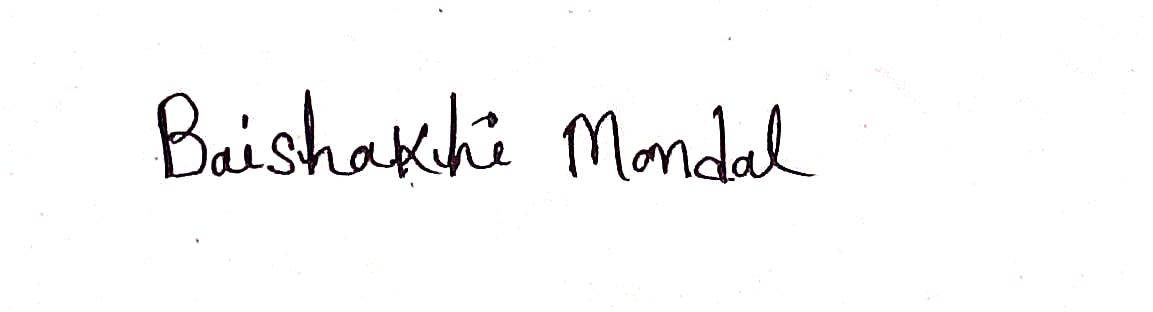 Baishakhi Mondal